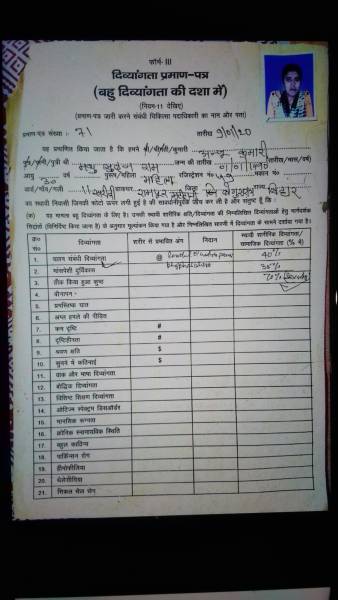 फॉर्म- III
दिव्यांगता प्रमाण-पत्र
(बहु दिव्यांगता की दशा में)
(नियम-11 देखिए)
(प्रमाण-पत्र जारी करने संबंधी चिकित्सा पदाधिकारी का नाम और पता)
प्रमाण-पत्र संख्या : 71 तारीख 9/01/20
यह प्रमाणित किया जाता है कि हमने श्री/श्रीमती/कुमारी कुमारी
राम जन्म की तारीख (तारीख/माह/वर्ष)
आयु 30 वर्ष पुरूष/महिला महिला रजिस्ट्रेशन नं० मकान नं०
वार्ड/गाँव/गली डाकघर जिला राज्य बिहार
का स्थायी निवासी जिनकी फोटो ऊपर लगी हुई है की सावधानीपूर्वक जाँच कर ली है और संतुष्ट हूँ कि :
(क) यह मामला बहु दिव्यांगता के लिए है। उनकी स्थायी शारीरिक क्षति/दिव्यांगता की निम्नलिखित दिव्यांगताओं हेतु मार्गदर्शक
सिद्धांतों (विनिर्दिष्ट किया जाना है) के अनुसार मूल्यांकन किया गया है और निम्नलिखित सारणी में दिव्यांगता के सामने दर्शाया गया है।
क्र० सं० दिव्यांगता शरीर से प्रभावित अंग निदान स्थायी शारीरिक दिव्यांगता/मानसिक दिव्यांगता (% में)
1. चलन संबंधी दिव्यांगता @ 40%
2. मांसपेशी दुर्विकास 30%
3. ठीक किया हुआ कुष्ठ
4. बौनापन
5. प्रमस्तिष्क घात
6. अम्ल हमले की पीड़ित
7. कम दृष्टि #
8. दृष्टिहीनता #
9. श्रवण क्षति $
10. सुनने में कठिनाई $
11. वाक और भाषा दिव्यांगता
12. बौद्धिक दिव्यांगता
13. विशिष्ट शिक्षण दिव्यांगता
14. ऑटिज्म स्पेक्ट्रम डिसऑर्डर
15. मानसिक रूग्णता
16. क्रोनिक स्नायविक स्थिति
17. बहुल काठिन्य
18. पार्किंसन रोग
19. हीमोफीलिया
20. थेलेसीमिया
21. सिकल सेल रोग